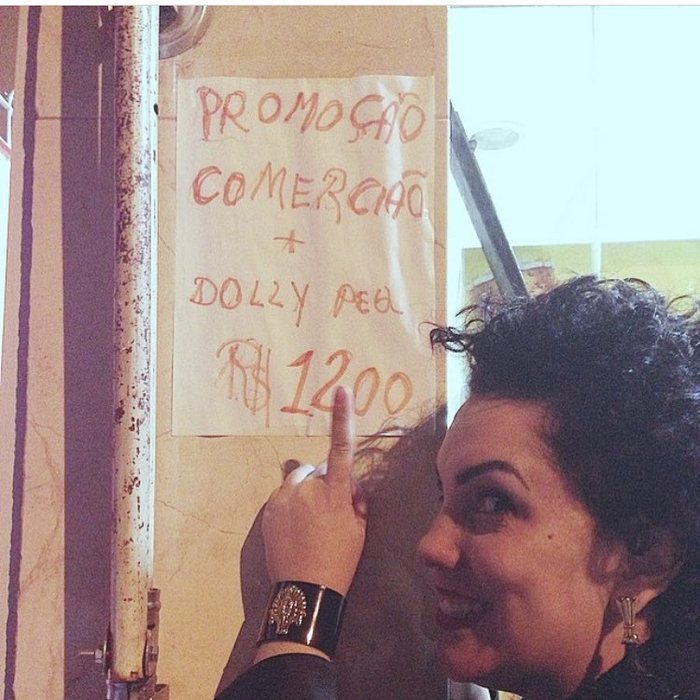 PROMOÇÃO
COMERCIÃO
+
DOLLY PEQ
R$ 1200